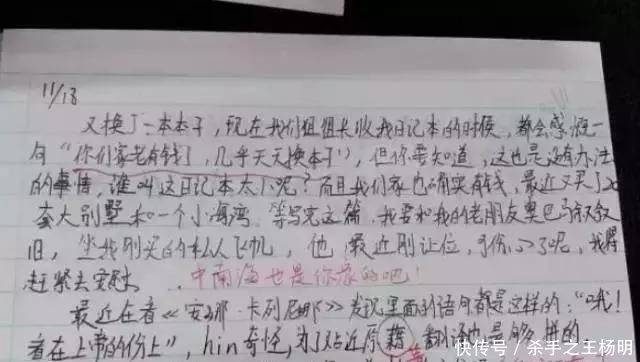 11/18
又换了一本本子，现在我们组组长收我日记本的时候，都会感慨一
句“你们家老有钱了，几乎天天换本子”，但你要知道，这也是没有办法
的事情，谁叫这日记本太小呢？而且我们家也确实有钱，最近又买了
套大别墅和一个小海湾，等写完这篇，我要和我的老朋友奥巴马叙叙
旧，坐我刚买的私人飞机，他最近刚让位，可伤心了呢，我得
赶紧去安慰
中南海也是你家的吧！
最近在看《安娜·卡列尼娜》发现里面的语句都是这样的：“哦！
看在上帝的份上”，hin奇怪，为了贴近原著，翻译也是够拼的
快传号/杀手之王杨明